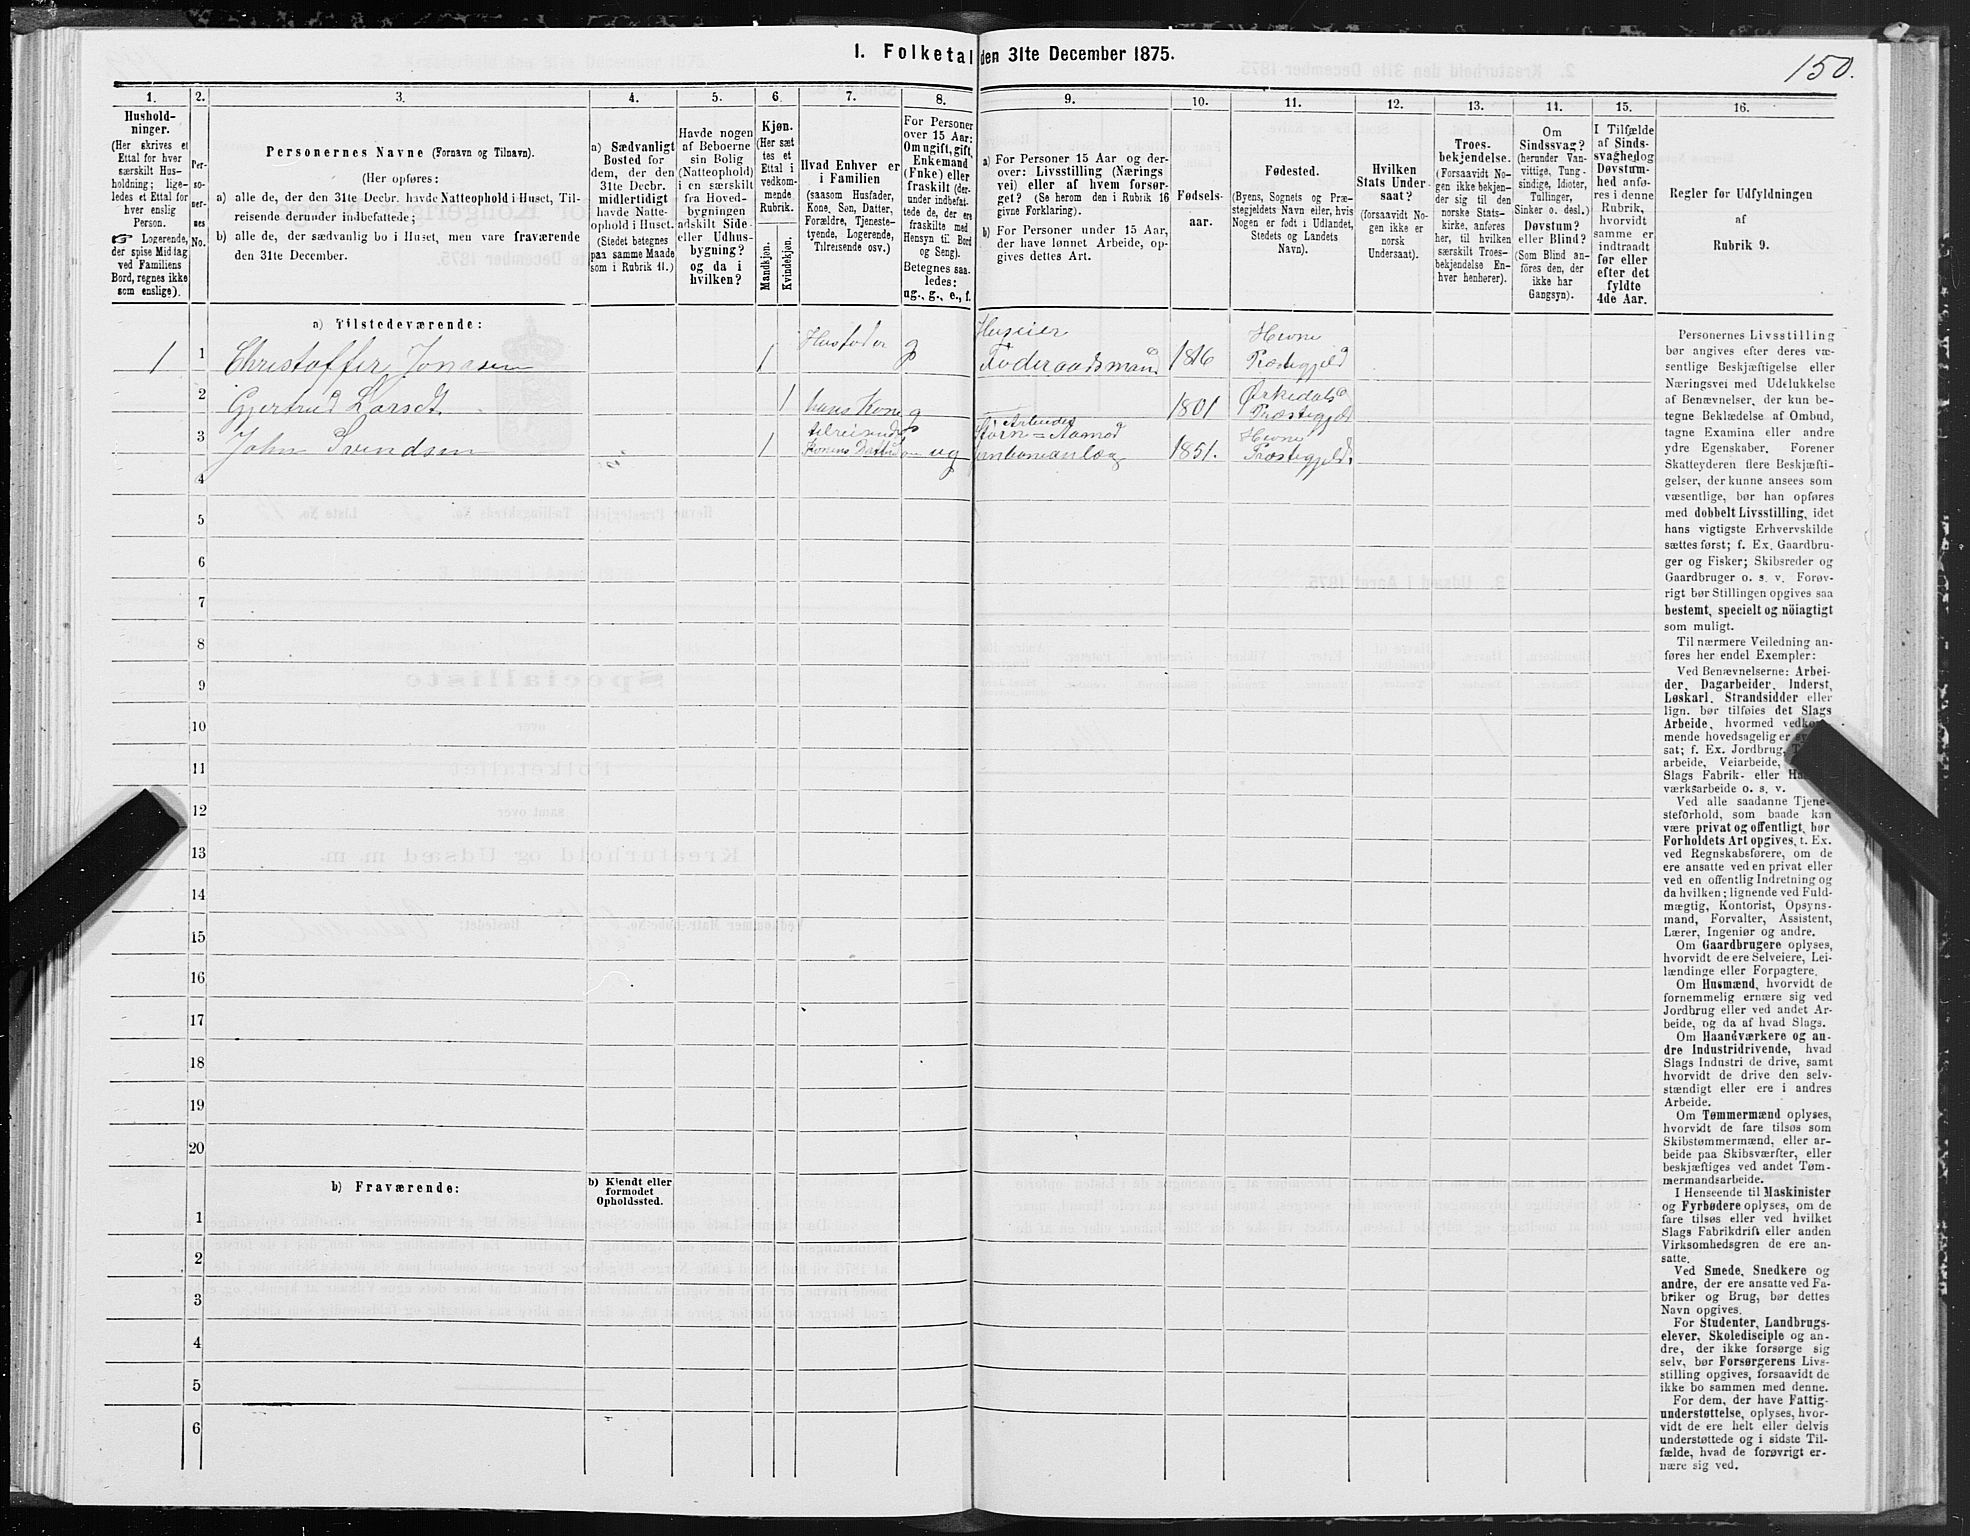 1. Folketal den 31te December 1875.
150.
1. 2. 3. 4. 5. 6. 7. 8. 9. 10. 11. 12. 13. 14. 15. 16.
Hushold-
ninger.
(Her skrives et
Ettal for hver
særskilt Hus-
holdning; lige-
ledes et Ettal for
hver enslig
Person.
☞ Logerende,
der spise Middag
ved Familiens
Bord, regnes ikke
som enslige).
Per-
so-
ner-
nes
No.
Personernes Navne (Fornavn og Tilnavn).
(Her opføres:
a) alle de, der den 31te Decbr. havde Natteophold i Huset, Til-
reisende derunder indbefattede;
b) alle de, der sædvanlig bo i Huset, men vare fraværende
den 31te December.
a) Sædvanligt
Bosted for
dem, der den
31te Decbr.
midlertidigt
havde Natte-
ophold i Huset.
(Stedet betegnes
paa samme Maade
som i Rubrik 11.)
Havde nogen
af Beboerne
sin Bolig
(Natteophold)
i en særskilt
fra Hoved-
bygningen
adskilt Side-
eller Udhus-
bygning?
og da i
hvilken?
Kjøn.
(Her sæt
tes et
Ettal i
vedkom-
mende
Rubrik.
Mandkjøn.
Kvindekjøn.
Hvad Enhver er
i Familien
(saasom Husfader,
Kone, Søn, Datter,
Forældre, Tjeneste-
tyende, Logerende,
Tilreisende osv.)
For Personer
over 15 Aar:
Om ugift, gift,
Enkemand
(Enke) eller
fraskilt (der-
under indbefat-
tede de, der ere
fraskilte med
Hensyn til Bord
og Seng).
Betegnes saa-
ledes:
ug., g., e., f.
a) For Personer 15 Aar og der-
over: Livsstilling (Nærings
vei) eller af hvem forsør-
get? (Se herom den i Rubrik 16
givne Forklaring).
b) For Personer under 15 Aar,
der have lønnet Arbeide, op-
gives dettes Art.
Fødsels-
aar.
Fødested.
(Byens, Sognets og Præ-
stegjeldets Navn eller, hvis
Nogen er født i Udlandet,
Stedets og Landets
Navn).
Hvilken
Stats Under-
saat?
(forsaavidt No-
gen ikke er
norsk
Undersaat).
Troes-
bekjendelse.
(Forsaavidt No-
gen ikke bekjen-
der sig til den
norske Stats-
kirke, anføres
her, til hvilken
særskilt Troes-
bekjendelse En-
hver henhører).
Om
Sindssvag?
(herunder Van-
vittige, Tung-
sindige, Idioter,
Tullinger,
Sinker o. desl.)
Døvstum?
eller Blind?
(Som Blind an-
føres den, der
ikke har
Gangsyn).
I Tilfælde
af Sinds-
svaghed og
Døvstum-
hed anfø-
res i denne
Rubrik,
hvorvidt
samme er
indtraadt
før eller
efter det
fyldte
4de Aar.
Regler for Udfyldningen
af
Rubrik 9.
a) Tilstedeværende:
1 1 Christoffer Jonasen 1 Husfader g Huseier Føderaadsmand 1816 Hevne Præstegjeld
2 Gjertrud Larsdt. 1 hans Kone g 1801 Ørkedals Præstegjeld
3 John Svendsen 1 tilreisende Konens ug Arbeider 1851. Hevne Præstegjeld
4
5
6
7
8
9
10
11
12
13
14
15
16
17
18
19
20
b) Fraværende:
b) Kjendt eller
formodet
Opholdssted.
1
2
3
4
5
6
Personernes Livsstilling
bør angives efter deres væ-
sentlige Beskjæftigelse eller
Næringsvei med Udelukkelse
af Benævnelser, der kun be-
tegne Beklædelse af Ombud,
tagne Examina eller andre
ydre Egenskaber. Forener
Skatteyderen flere Beskjæfti-
gelser, der kunne ansees som
væsentlige, bør han opføres
med dobbelt Livsstilling, idet
hans vigtigste Erhvervskilde
sættes først; f. Ex. Gaardbru-
ger og Fisker; Skibsreder og
Gaardbruger o. s. v. Forøv-
rigt bør Stillingen opgives saa
bestemt, specielt og nöiagtigt
som muligt.
Til nærmere Veiledning an-
føres her endel Exempler:
Ved Benævnelserne: Arbei-
der, Dagarbeider, Inderst,
Løskarl, Strandsidder eller
lign. bør tilføies det Slags
Arbeide, hvormed
mende hovedsagelig er
sat; f. Ex. Jordbrug,
arbeide, Veiarbeide,
Slags Fabrik- eller
værksarbeide o. s. v.
Ved alle saadanne Tjene-
steforhold, som baade kan
være privat og offentligt, bør
Forholdets Art opgives, t. Ex.
ved Regnskabsførere, om de
ere ansatte ved en privat eller
ved en offentlig Indretning og
da hvilken; lignende ved Fuld-
mægtig, Kontorist, Opsyns-
mand, Forvalter, Assistent,
Lærer, Ingeniør og andre.
Om Gaardbrugere oplyses,
hvorvidt de ere Selveiere, Lei-
lændinge eller Forpagtere.
Om Husmænd, hvorvidt de
fornemmelig ernære sig ved
Jordbrug eller ved andet Ar-
beide, og da af hvad Slags.
Om Haandværkere og an-
dre Industridrivende, hvad
Slags Industri de drive, samt
hvorvidt de drive den selv-
stændigt eller ere i andres
Arbeide.
Om Tømmermænd oplyses,
hvorvidt de fare tilsøs som
Skibstømmermænd, eller ar-
beide paa Skibsværfter, eller
beskjæftiges ved andet Tøm-
mermandsarbeide.
I Henseende til Maskinister
og Fyrbødere oplyses, om de
fare tilsøs eller ved hvilket
Slags Fabrikdrift eller anden
Virksomhedsgren de ere an-
satte.
Ved Smede, Snedkere og
andre, der ere ansatte ved Fa-
briker og Brug, bør dettes
Navn opgives.
For Studenter, Landbrugs-
elever, Skoledisciple og an-
dre, der ikke forsørge sig
selv, bør Forsørgerens Livs-
stilling opgives, forsaavidt de
ikke bo sammen med denne.
For dem, der have Fattig-
understøttelse, oplyses, hvor-
vidt de ere helt eller delvis
understøttede og i sidste Til-
fælde, hvad de forøvrigt er-
nære sig ved.